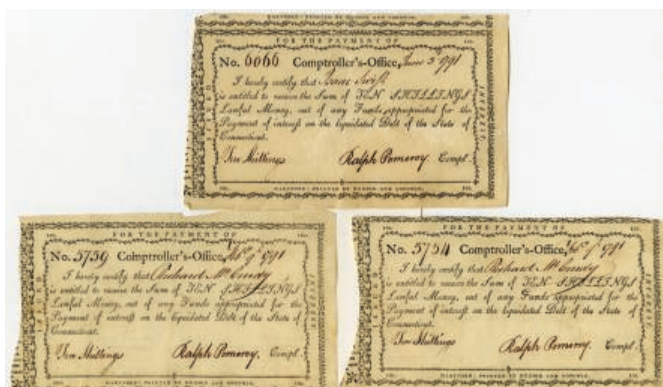 HARTFORD: PRINTED BY HUDSON AND GOODWIN.
FOR THE PAYMENT OF
No. 6066 Comptroller's-Office, June 3d 1791
I hereby certify that Isaac Swift
is entitled to receive the Sum of TEN SHILLINGS
Lawful Money, out of any Funds appropriated for the
Payment of interest on the liquidated Debt of the State of
Connecticut.
Ten Shillings Ralph Pomeroy. Compt.
HARTFORD: PRINTED BY HUDSON AND GOODWIN.
ISSUED
INTEREST
FOR THE PAYMENT OF
No. 5759 Comptroller's-Office, 1791
I hereby certify that Richard McCurdy
is entitled to receive the Sum of TEN SHILLINGS
Lawful Money, out of any Funds appropriated for the
Payment of interest on the liquidated Debt of the State of
Connecticut.
Ten Shillings Ralph Pomeroy. Compt.
HARTFORD: PRINTED BY HUDSON AND GOODWIN.
INTEREST
FOR THE PAYMENT OF
No. 5754 Comptroller's-Office, 1791
I hereby certify that Richard McCurdy
is entitled to receive the Sum of TEN SHILLINGS
Lawful Money, out of any Funds appropriated for the
Payment of interest on the liquidated Debt of the State of
Connecticut.
Ten Shillings Ralph Pomeroy. Compt.
HARTFORD: PRINTED BY HUDSON AND GOODWIN.
INTEREST